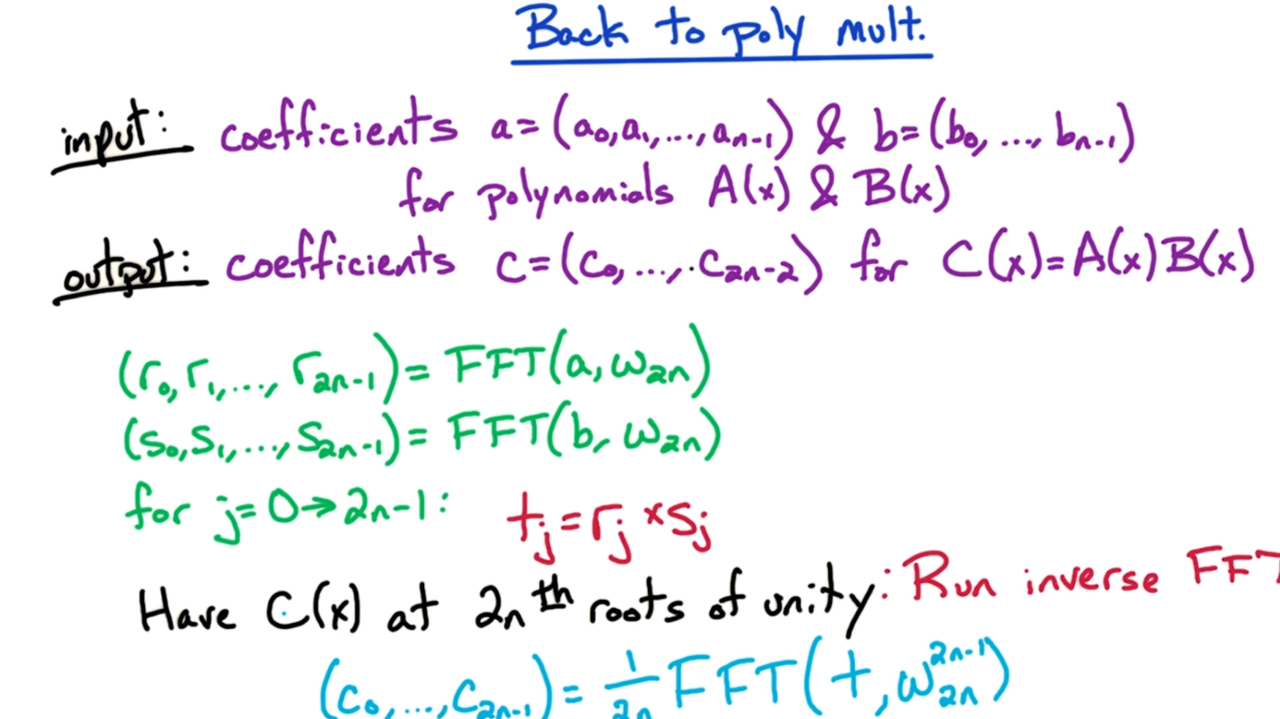 Back to poly mult.
input: coefficients a=(a₀,a₁,...,aₙ₋₁) & b=(b₀,...,bₙ₋₁)
for polynomials A(x) & B(x)
output: coefficients c=(c₀,...,c₂ₙ₋₂) for C(x)=A(x)B(x)
(r₀,r₁,...,r₂ₙ₋₁)=FFT(a,ω₂ₙ)
(s₀,s₁,...,s₂ₙ₋₁)=FFT(b,ω₂ₙ)
for j=0→2n-1: tⱼ=rⱼ×sⱼ
Have C(x) at 2nᵗʰ roots of unity: Run inverse FFT
(c₀,...,c₂ₙ₋₁)=1/2n FFT(t,ω₂ₙ²ⁿ⁻¹)